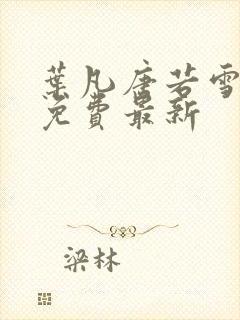 葉凡唐若雪
免費最新
梁林